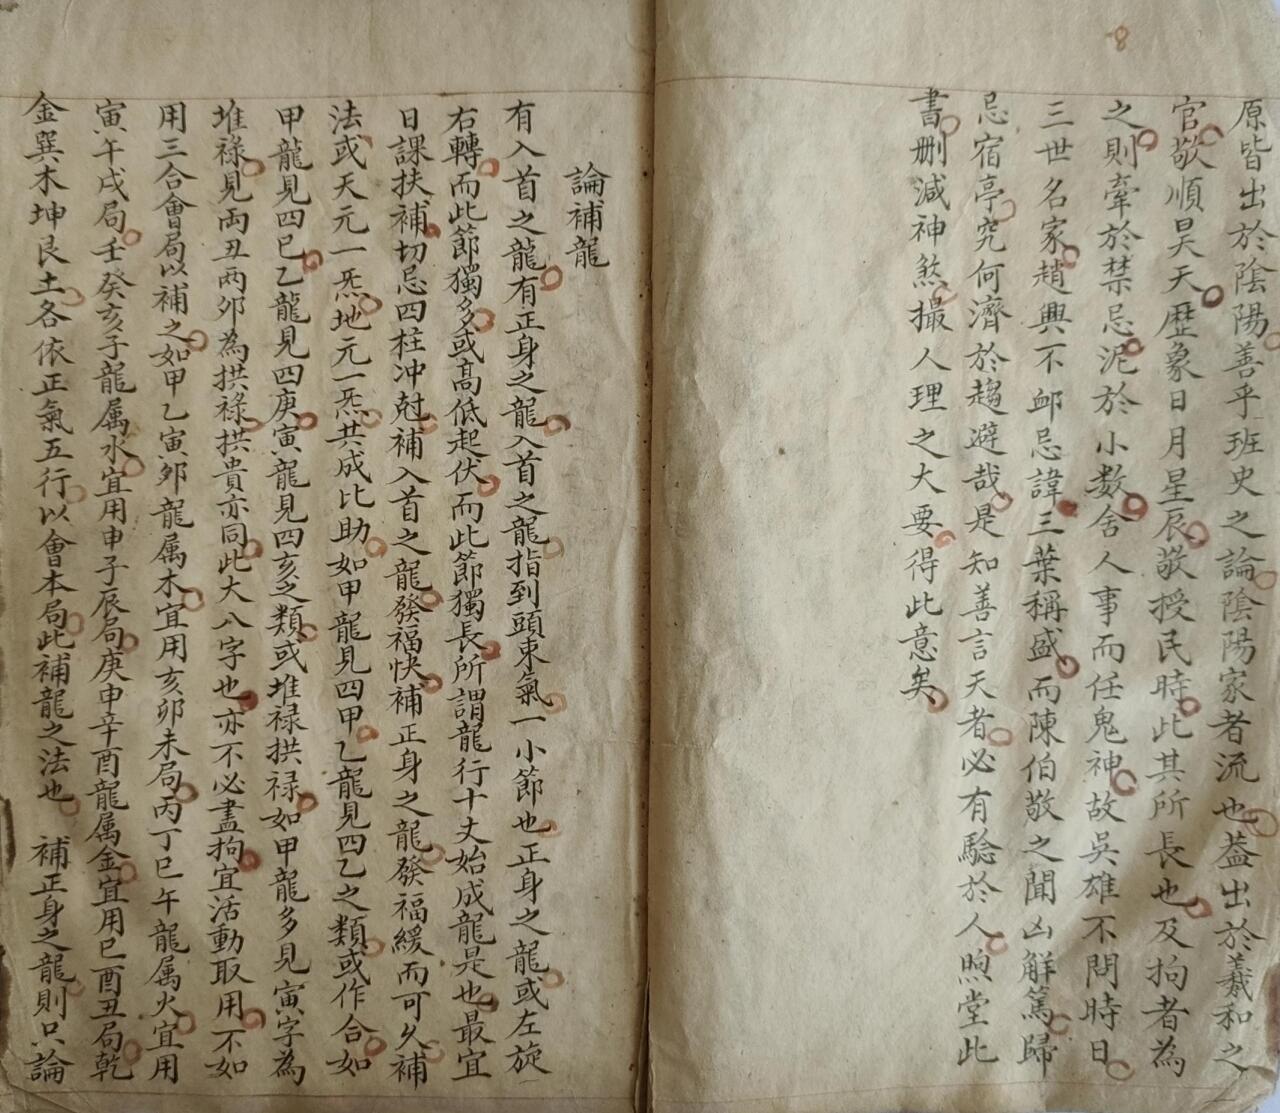 8
原皆出於陰陽善乎班史之論陰陽家者流也葢出於羲和之
官敬順昊天歷象日月星辰敬授民時此其所長也及拘者為
之則牽於禁忌泥於小数舍人事而任鬼神故吳雄不問時日
三世名家趙興不邺忌諱三葉稱盛而陳伯敬之聞凶觧篤歸
忌宿亭究何濟於趨避哉是知善言天者必有驗於人煦堂此
書刪減神煞撮人理之大要得此意矣
論補龍
有入首之龍有正身之龍入首之龍指到頭束氣一小節也正身之龍或左旋
右轉而此節獨多或高低起伏而此節獨長所謂龍行十丈始成龍是也最宜
日課扶補切忌四柱冲尅補入首之龍發福快補正身之龍發福緩而可久補
法或天元一炁地元一炁共成比助如甲龍見四甲乙龍見四乙之類或作合如
甲龍見四巳乙龍見四庚寅龍見四亥之類或堆禄拱禄如甲龍多見寅字為
堆禄見両丑両卯為拱禄拱貴亦同此大八字也亦不必盡拘宜活動取用不如
用三合會局以補之如甲乙寅夘龍属木宜用亥卯未局丙丁巳午龍属火宜用
寅午戌局壬癸亥子龍属水宜用申子辰局庚申辛酉龍属金宜用巳酉丑局乾
金巽木坤艮土各依正氣五行以會本局此補龍之法也　補正身之龍則只論